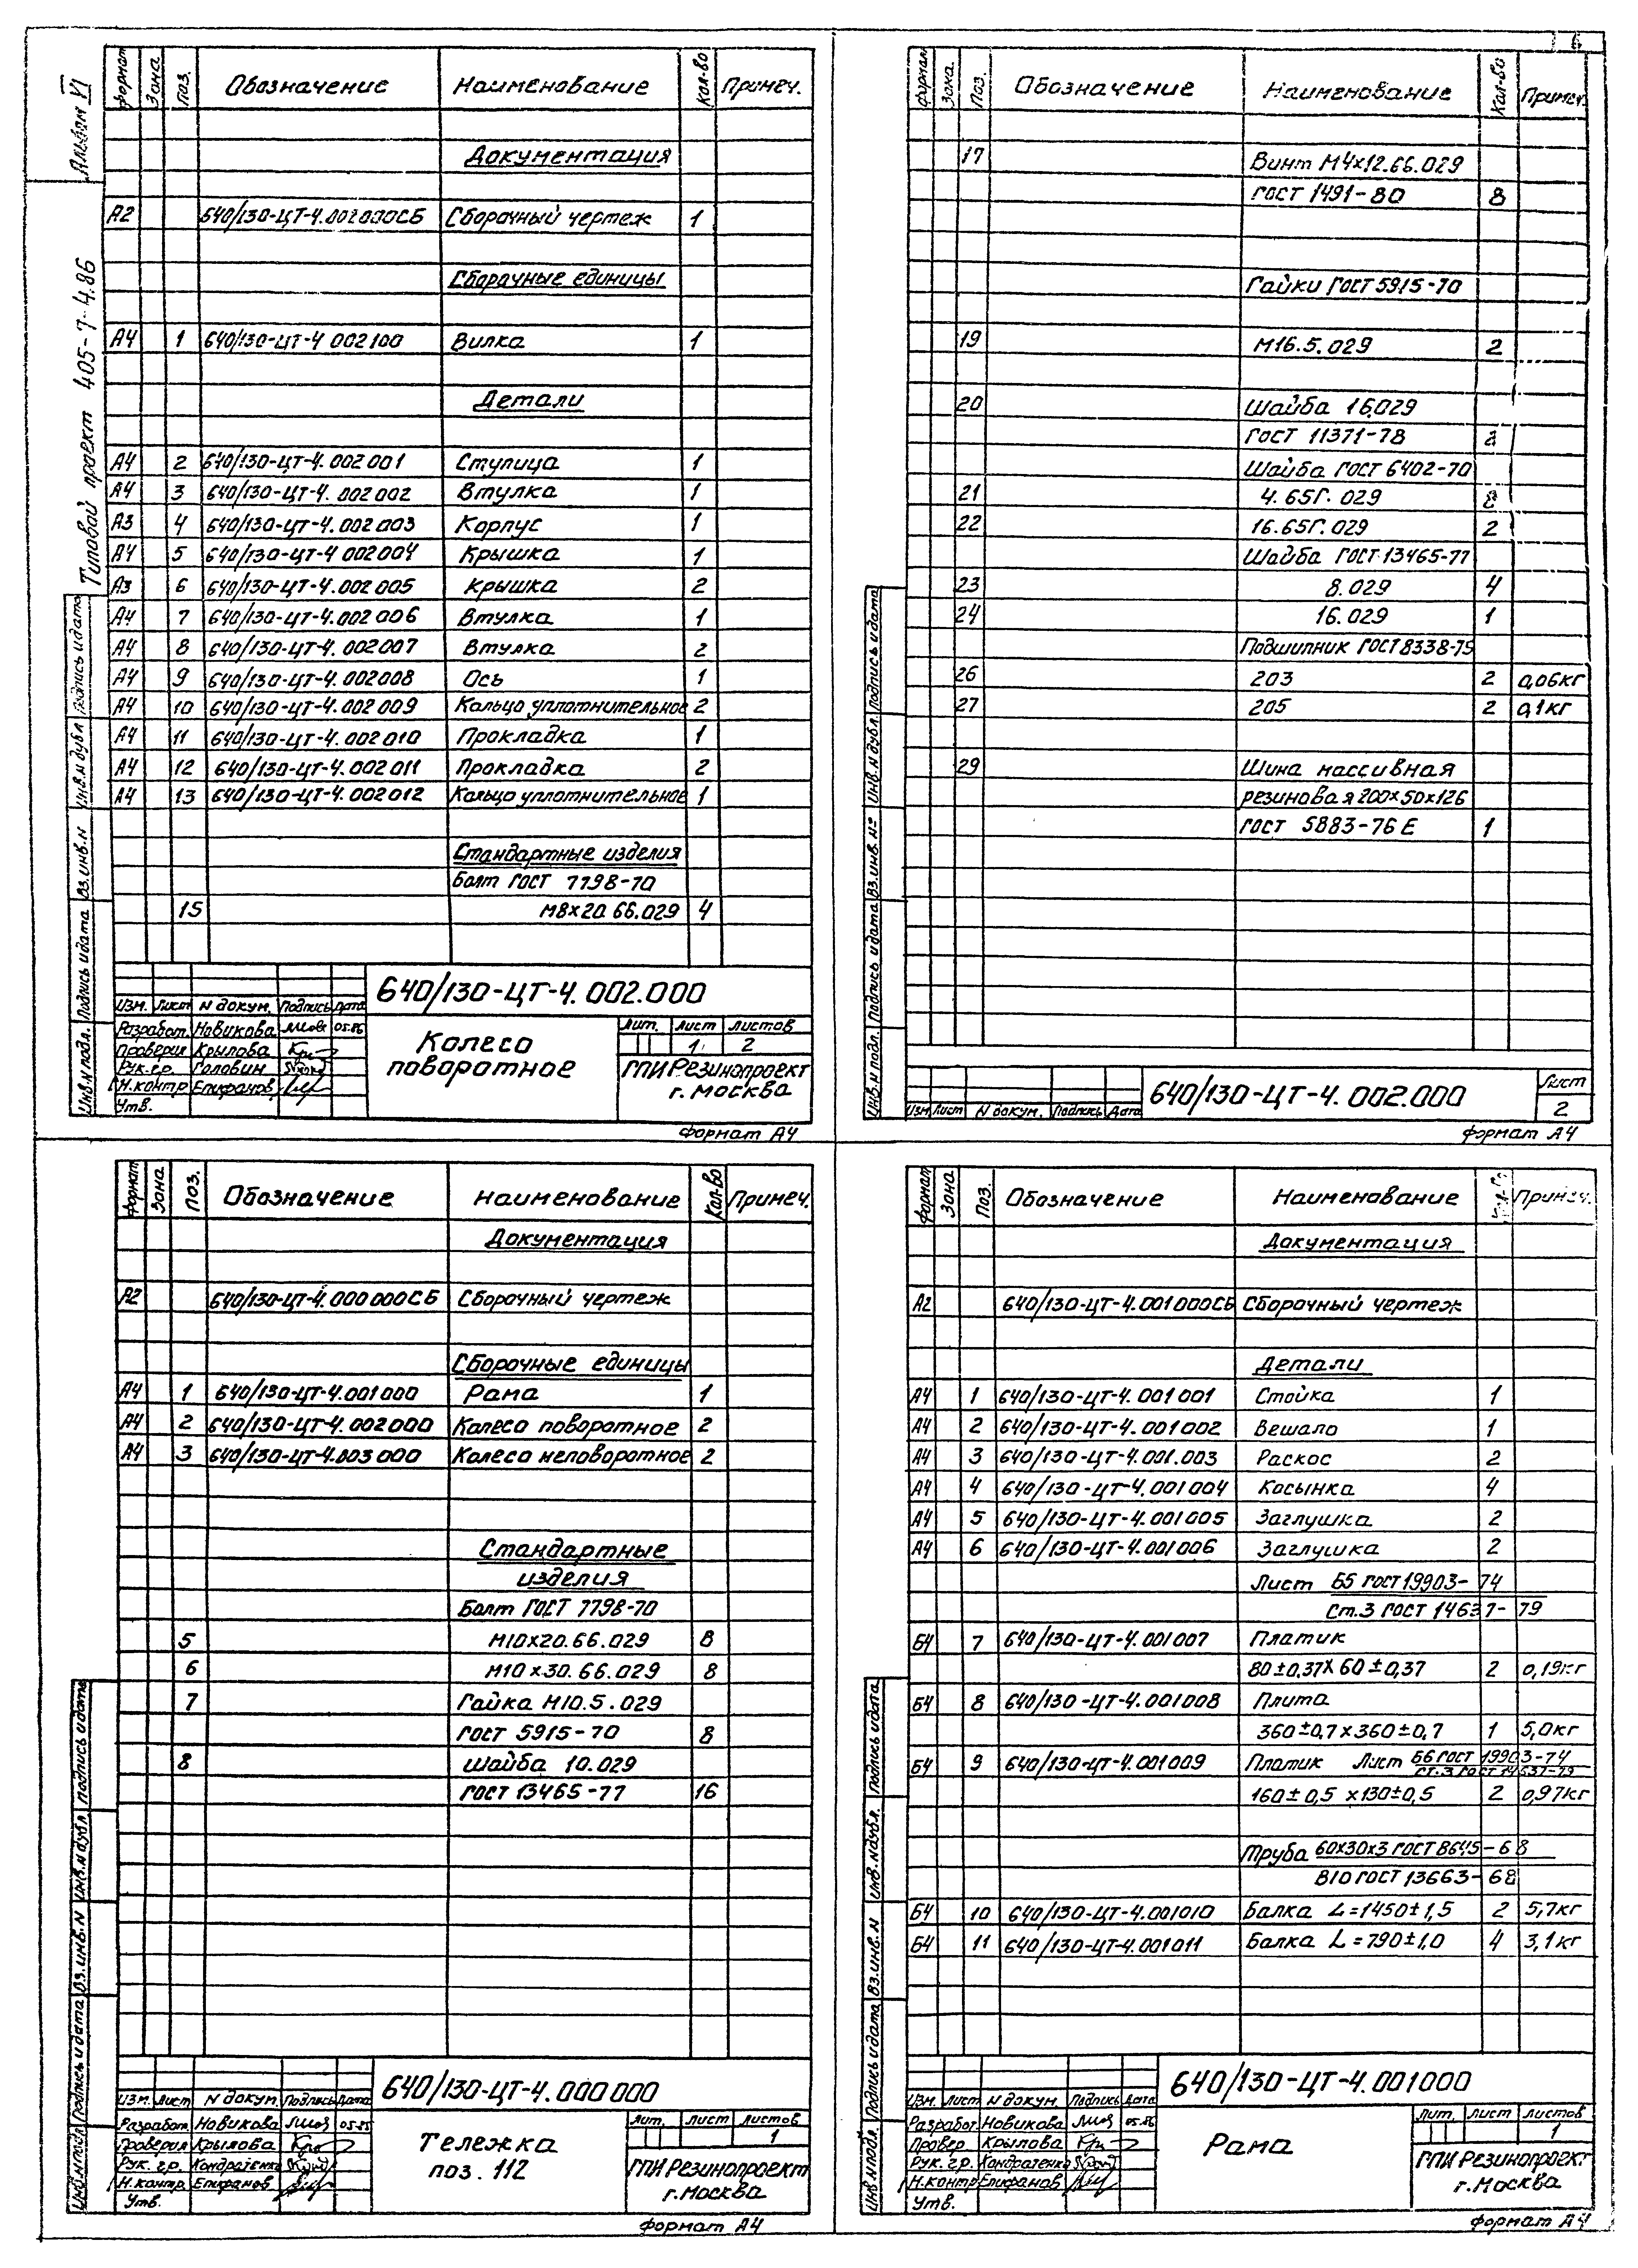 Альбом VI
Типовой проект 405-7-4.86
Формат Зона Поз. Обозначение Наименование Кол-во Примеч.
Документация
А2 640/130-ЦТ-4.002000СБ Сборочный чертеж 1
Сборочные единицы
А4 1 640/130-ЦТ-4 002100 Вилка 1
Детали
А4 2 640/130-ЦТ-4. 002 001 Ступица 1
А4 3 640/130-ЦТ-4. 002 002 Втулка 1
А3 4 640/130-ЦТ-4.002003 Корпус 1
А4 5 640/130-ЦТ-4 002004 Крышка 1
А3 6 640/130-ЦТ-4.002 005 Крышка 2
А4 7 640/130-ЦТ-4. 002 006 Втулка 1
А4 8 640/130-ЦТ-4. 002007 Втулка 2
А4 9 640/130-ЦТ-4.002008 Ось 1
А4 10 640/130-ЦТ-4.002009 Кольцо уплотнительное 2
А4 11 640/130-ЦТ-4.002010 Прокладка 1
А4 12 640/130-ЦТ-4.002 011 Прокладка 2
А4 13 640/130-ЦТ-4.002012 Кольцо уплотнительное 1
Стандартные изделия
Болт ГОСТ 7798-70
15 М8х20.66.029 4
Инв.N подл. Подпись и дата Вз.инв.N Инв.N дубл Подпись и дата
640/130-ЦТ-4.002.000
Изм. Лист N докум. Подпись Дата
Разработ. Новикова 05.86
Проверил Крылова
Рук.гр. Головин
Н.контр Епифанов
Утв.
Колесо
поворотное
Лит. Лист Листов
1 2
ГПИ Резинопроект
г. Москва
Формат А4
Формат Зона. Поз. Обозначение Наименование Кол-во Примеч.
17 Винт М4х12.66.029
ГОСТ 1491-80 8
Гайки ГОСТ 5915-70
19 М16.5.029 2
20 Шайба 16.029
ГОСТ 11371-78
Шайба ГОСТ 6402-70
21 4.65Г.029
22 16.65Г.029 2
Шайба ГОСТ 13465-77
23 8.029 4
24 16.029 1
Подшипник ГОСТ 8338-75
26 203 2 0,06кг
27 205 2 0,1кг
29 Шина массивная
резиновая 200х50х126
ГОСТ 5883-76Е 1
Инв.N подл. Подпись и дата Вз.инв.№ Инв.N дубл Подпись и дата
Изм Лист N докум. Подпись Дата
640/130-ЦТ-4. 002.000
Лист
2
Формат А4
Формат Зона Поз. Обозначение Наименование Кол-во Примеч.
Документация
А2 640/130-ЦТ-4.000 000СБ Сборочный чертеж
Сборочные единицы
А4 1 640/130-ЦТ-4.001000 Рама 1
А4 2 640/130-ЦТ-4.002000 Колесо поворотное 2
А4 3 640/130-ЦТ-4.003 000 Колесо неповоротное 2
Стандартные
изделия
Болт ГОСТ 7798-70
5 М10х20.66.029 8
6 М10х30.66.029 8
7 Гайка М10.5.029
ГОСТ 5915-70 8
8 Шайба 10.029
ГОСТ 13465-77 16
Инв.N подл Подпись и дата Вз.инв.N Инв.N дубл. Подпись и дата
640/130-ЦТ-4.000000
Изм. Лист N докум. Подпись Дата
Разработ. Новикова
Проверил Крылова
Рук.гр. Кондратенко
Н.контр Епифанов
Утв.
Тележка
поз. 112
Лит. Лист Листов
1
ГПИ Резинопроект
г.Москва
Формат А4
Формат Зона Поз. Обозначение Наименование Примеч.
Документация
А2 640/130-ЦТ-4.001000СБ Сборочный чертеж
Детали
А4 1 640/130-ЦТ-4. 001 001 Стойка 1
А4 2 640/130-ЦТ-4.001002 Вешало 1
А4 3 640/130-ЦТ-4.001.003 Раскос 2
А4 4 640/130-ЦТ-4.001004 Косынка 4
А4 5 640/130-ЦТ-4.001005 Заглушка 2
А4 6 640/130-ЦТ-4.001006 Заглушка 2
Лист Б5 ГОСТ 19903-74
Ст.3 ГОСТ 14637-79
Б4 7 640/130-ЦТ-4.001007 Платик
80±0,37х60±0,37 2 0,19кг
Б4 8 640/130-ЦТ-4.001008 Плита
360±0,7х360±0,7 1 5,0кг
Б4 9 640/130-ЦТ-4.001009 Платик Лист Б6 ГОСТ 19903-74
Ст.3 ГОСТ 14637-79
160±0,5 х130±0,5 2 0,97кг
Труба 60х30х3 ГОСТ 8645-68
В10 ГОСТ 13663-68
Б4 10 640/130-ЦТ-4.001010 Балка L=1450±1,5 2 5,7кг
Б4 11 640/130-ЦТ-4.001011 Балка L=790±1,0 4 3,1кг
Инв.N подл. Подпись и дата Вз.инв.N Инв.N дубл. Подпись и дата
640/130-ЦТ-4.001000
Изм. Лист N докум. Подпись Дата
Разработ. Новикова 05.86
Провер Крылова
Рук.гр. Кондратенко
Н.контр Епифанов
Утв.
Рама
Лит. Лист Листов
1
ГПИ Резинопроект
г.Москва
Формат А4